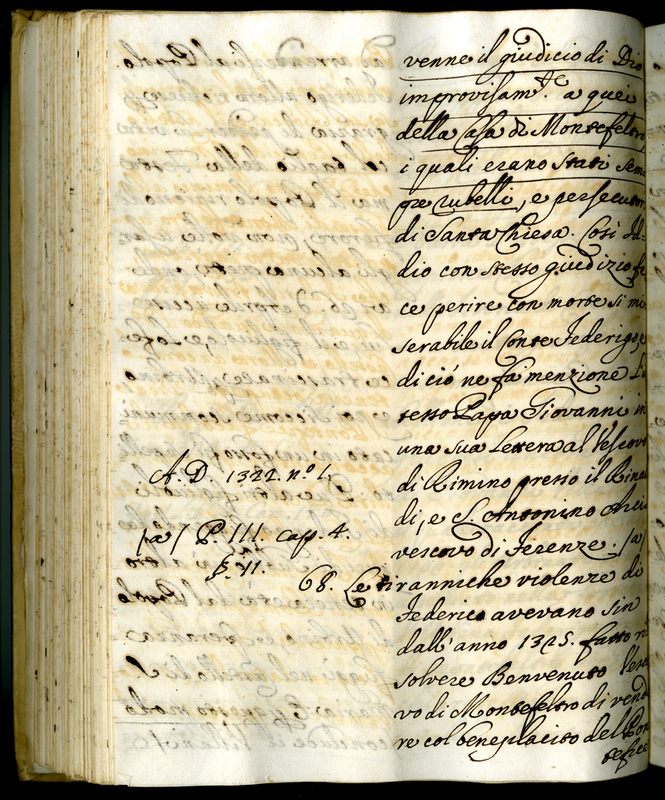 venne il giudicio di Dio
improvisam.te a quei
della Casa di Montefeltro
i quali erano stati sem
pre rubelli, e persecutor
di Santa Chiesa. Cosi Id=
dio con stesso giudizio fe
ce perire con morte si mi
serabile il Conte Federigo, e
di ciò ne fa menzione l'is
tesso Papa Giovanni in
una sua Lettera al Vescovo
di Rimino presso il Rinal
di, e S. Antonino Arci
vescovo di Firenze. /a/
A. D. 1322. n.o 1.
/a/ P. III. cap. 4.
§. 11.
68. Le tiranniche violenze di
Federico avevano sin
dall'anno 1325. fatto ri
solvere Benvenuto Vesco
vo di Montefeltro di vende
re col beneplacito del Pon
tefice